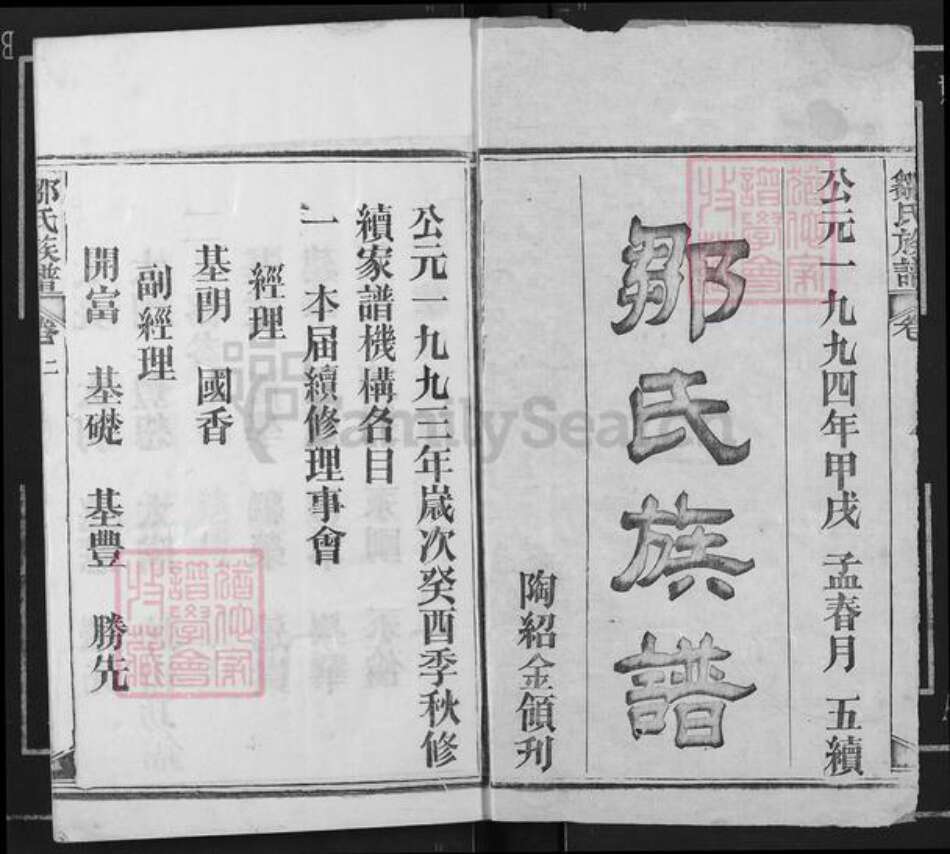 鄒氏族譜
公元一九九四年甲戌 孟春月 五續
鄒氏族譜
陶紹金領刊
公元一九九三年歲次癸酉季秋修
續家譜機構各目
一 本届續修理事會
經理
基明 國香
副經理
開富 基礎 基豐 勝先
鄒氏族譜 卷二
FamilySearch
譜學會
收藏